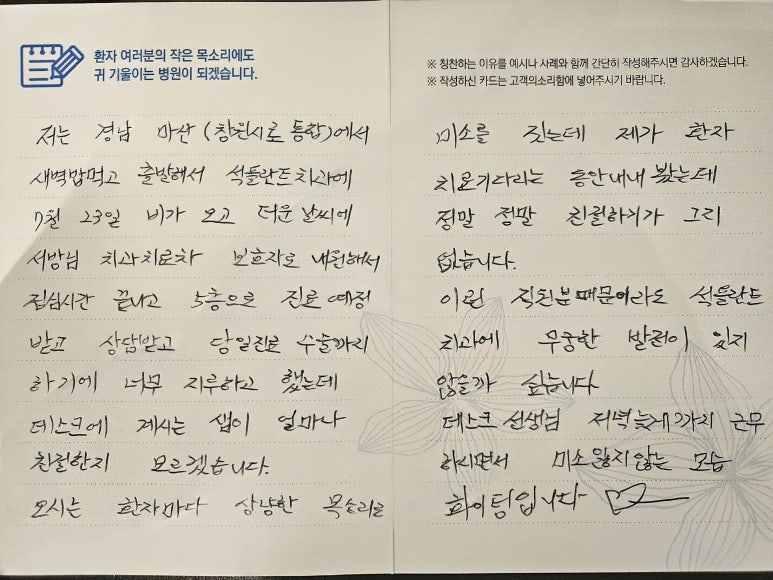 환자 여러분의 작은 목소리에도
귀 기울이는 병원이 되겠습니다.
저는 경남 마산 (창원시로 통합)에서
새벽밥먹고 출발해서 석플란트치과에
7월 23일 비가 오고 더운 날씨에
서방님 치과치료차 보호자로 내원해서
점심시간 끝나고 5층으로 진료 예정
받고 상담받고 당일진료 수술까지
하기에 너무 지루하고 했는데
데스크에 계시는 샘이 얼마나
친절한지 모르겠습니다.
오시는 환자마다 상냥한 목소리로
※ 칭찬하는 이유를 예시나 사례와 함께 간단히 작성해주시면 감사하겠습니다.
※ 작성하신 카드는 고객의소리함에 넣어주시기 바랍니다.
미소를 짓는데 제가 환자
치료기다리는 동안내내 봤는데
정말 정말 친절하기가 그리
없습니다.
이런 직원분때문이라도 석플란트
치과에 무궁한 발전이 있지
않을까 싶습니다
데스크 선생님 저녁늦게까지 근무
하시면서 미소잃지않는 모습
화이팅입니다